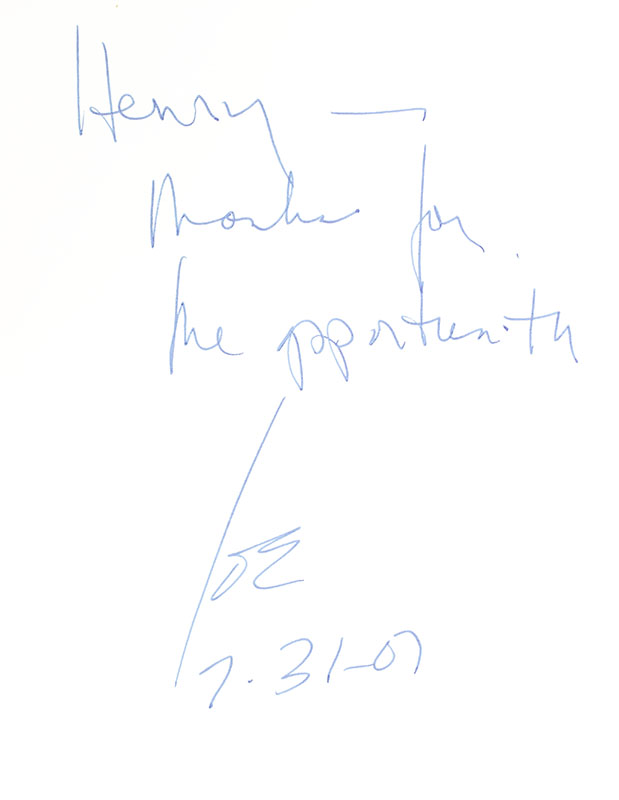 Henry —
Thanks for
the opportunity
JOE
7·31-07